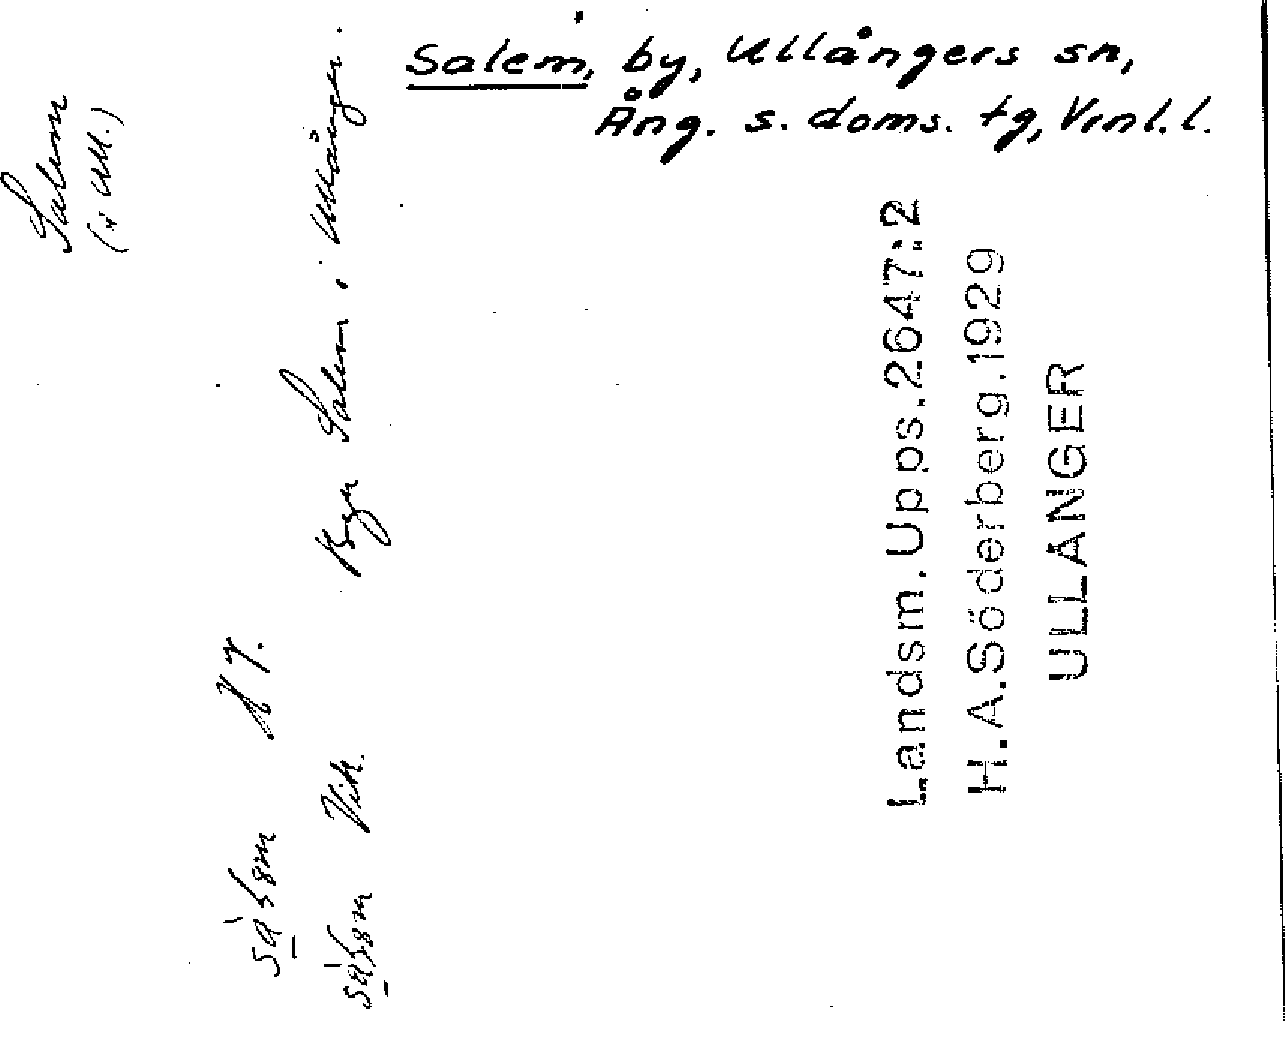 Salem, by, Ullångers sn,
Ång. s. doms. tg, Vrnl. l.
Salem
(i Ull.)
Byn Salem i Ullånger.
Vik.
Landsm. Upps. 2647:2
H.A. Söderberg. 1929
ULLÅNGER